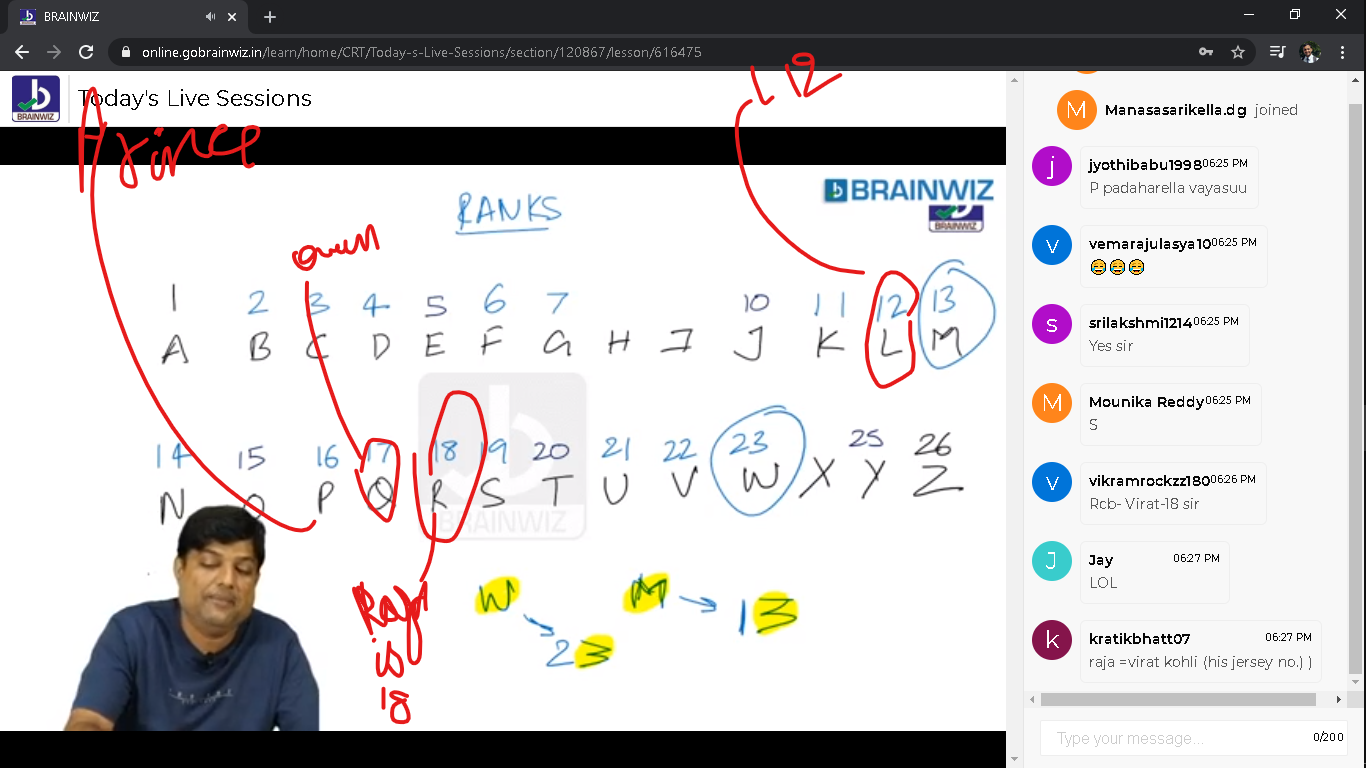 BRAINWIZ
online.gobrainwiz.in/learn/home/CRT/Today-s-Live-Sessions/section/120867/lesson/616475
BRAINWIZ
Today's Live Sessions
L 12
Prince
BRAINWIZ
BRAINWIZ
RANKS
1 2 3 4 5 6 7 10 11 12 13
A B C D E F G H I J K L M
14 15 16 17 18 19 20 21 22 23 25 26
N O P Q R S T U V W X Y Z
BRAINWIZ
W
23
M
13
Raja
is
18
Manasasarikella.dg joined
j
jyothibabu1998 06:25 PM
P padaharella vayasuu
v
vemarajulasya10 06:25 PM
😂😂😂
s
srilakshmi1214 06:25 PM
Yes sir
M
Mounika Reddy 06:25 PM
S
v
vikramrockzz180 06:26 PM
Rcb- Virat-18 sir
J
Jay 06:27 PM
LOL
k
kratikbhatt07 06:27 PM
raja =virat kohli (his jersey no.) )
Type your message...
0/200